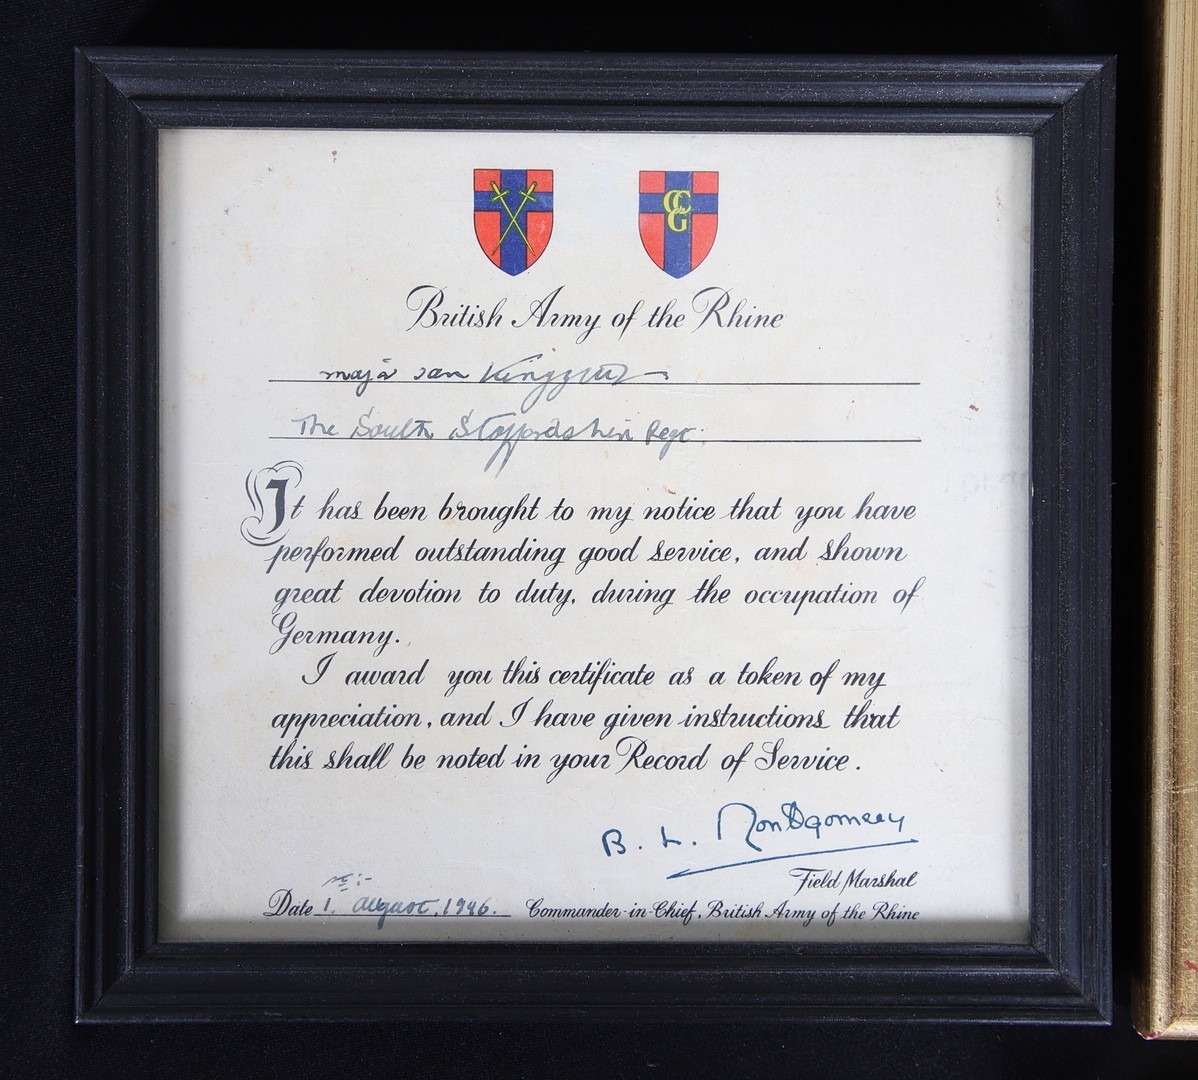 CCG
British Army of the Rhine
Major Ian
The South Staffordshire Regt.
It has been brought to my notice that you have
performed outstanding good service, and shown
great devotion to duty, during the occupation of
Germany.
I award you this certificate as a token of my
appreciation, and I have given instructions that
this shall be noted in your Record of Service.
B. L. Montgomery
Field Marshal
Date 1st August, 1946. Commander-in-Chief, British Army of the Rhine